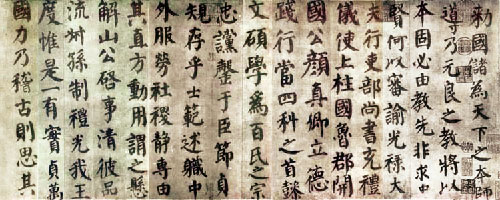 勅國儲為天下之本師
導乃元良之教將以
本固必由教先非求中
賢何以審諭光祿大
夫行吏部尚書充禮
儀使上柱國魯郡開
國公顏真卿立德
踐行當四科之首懿
文碩學為百氏之宗
忠讜罄于臣節貞
規存乎士範述職中
外服勞社稷靜專由
其直方動用謂之懸
解山公啓事清彼品
流叔孫制禮光我王
度惟是一有實貞萬
國力乃稽古則思其